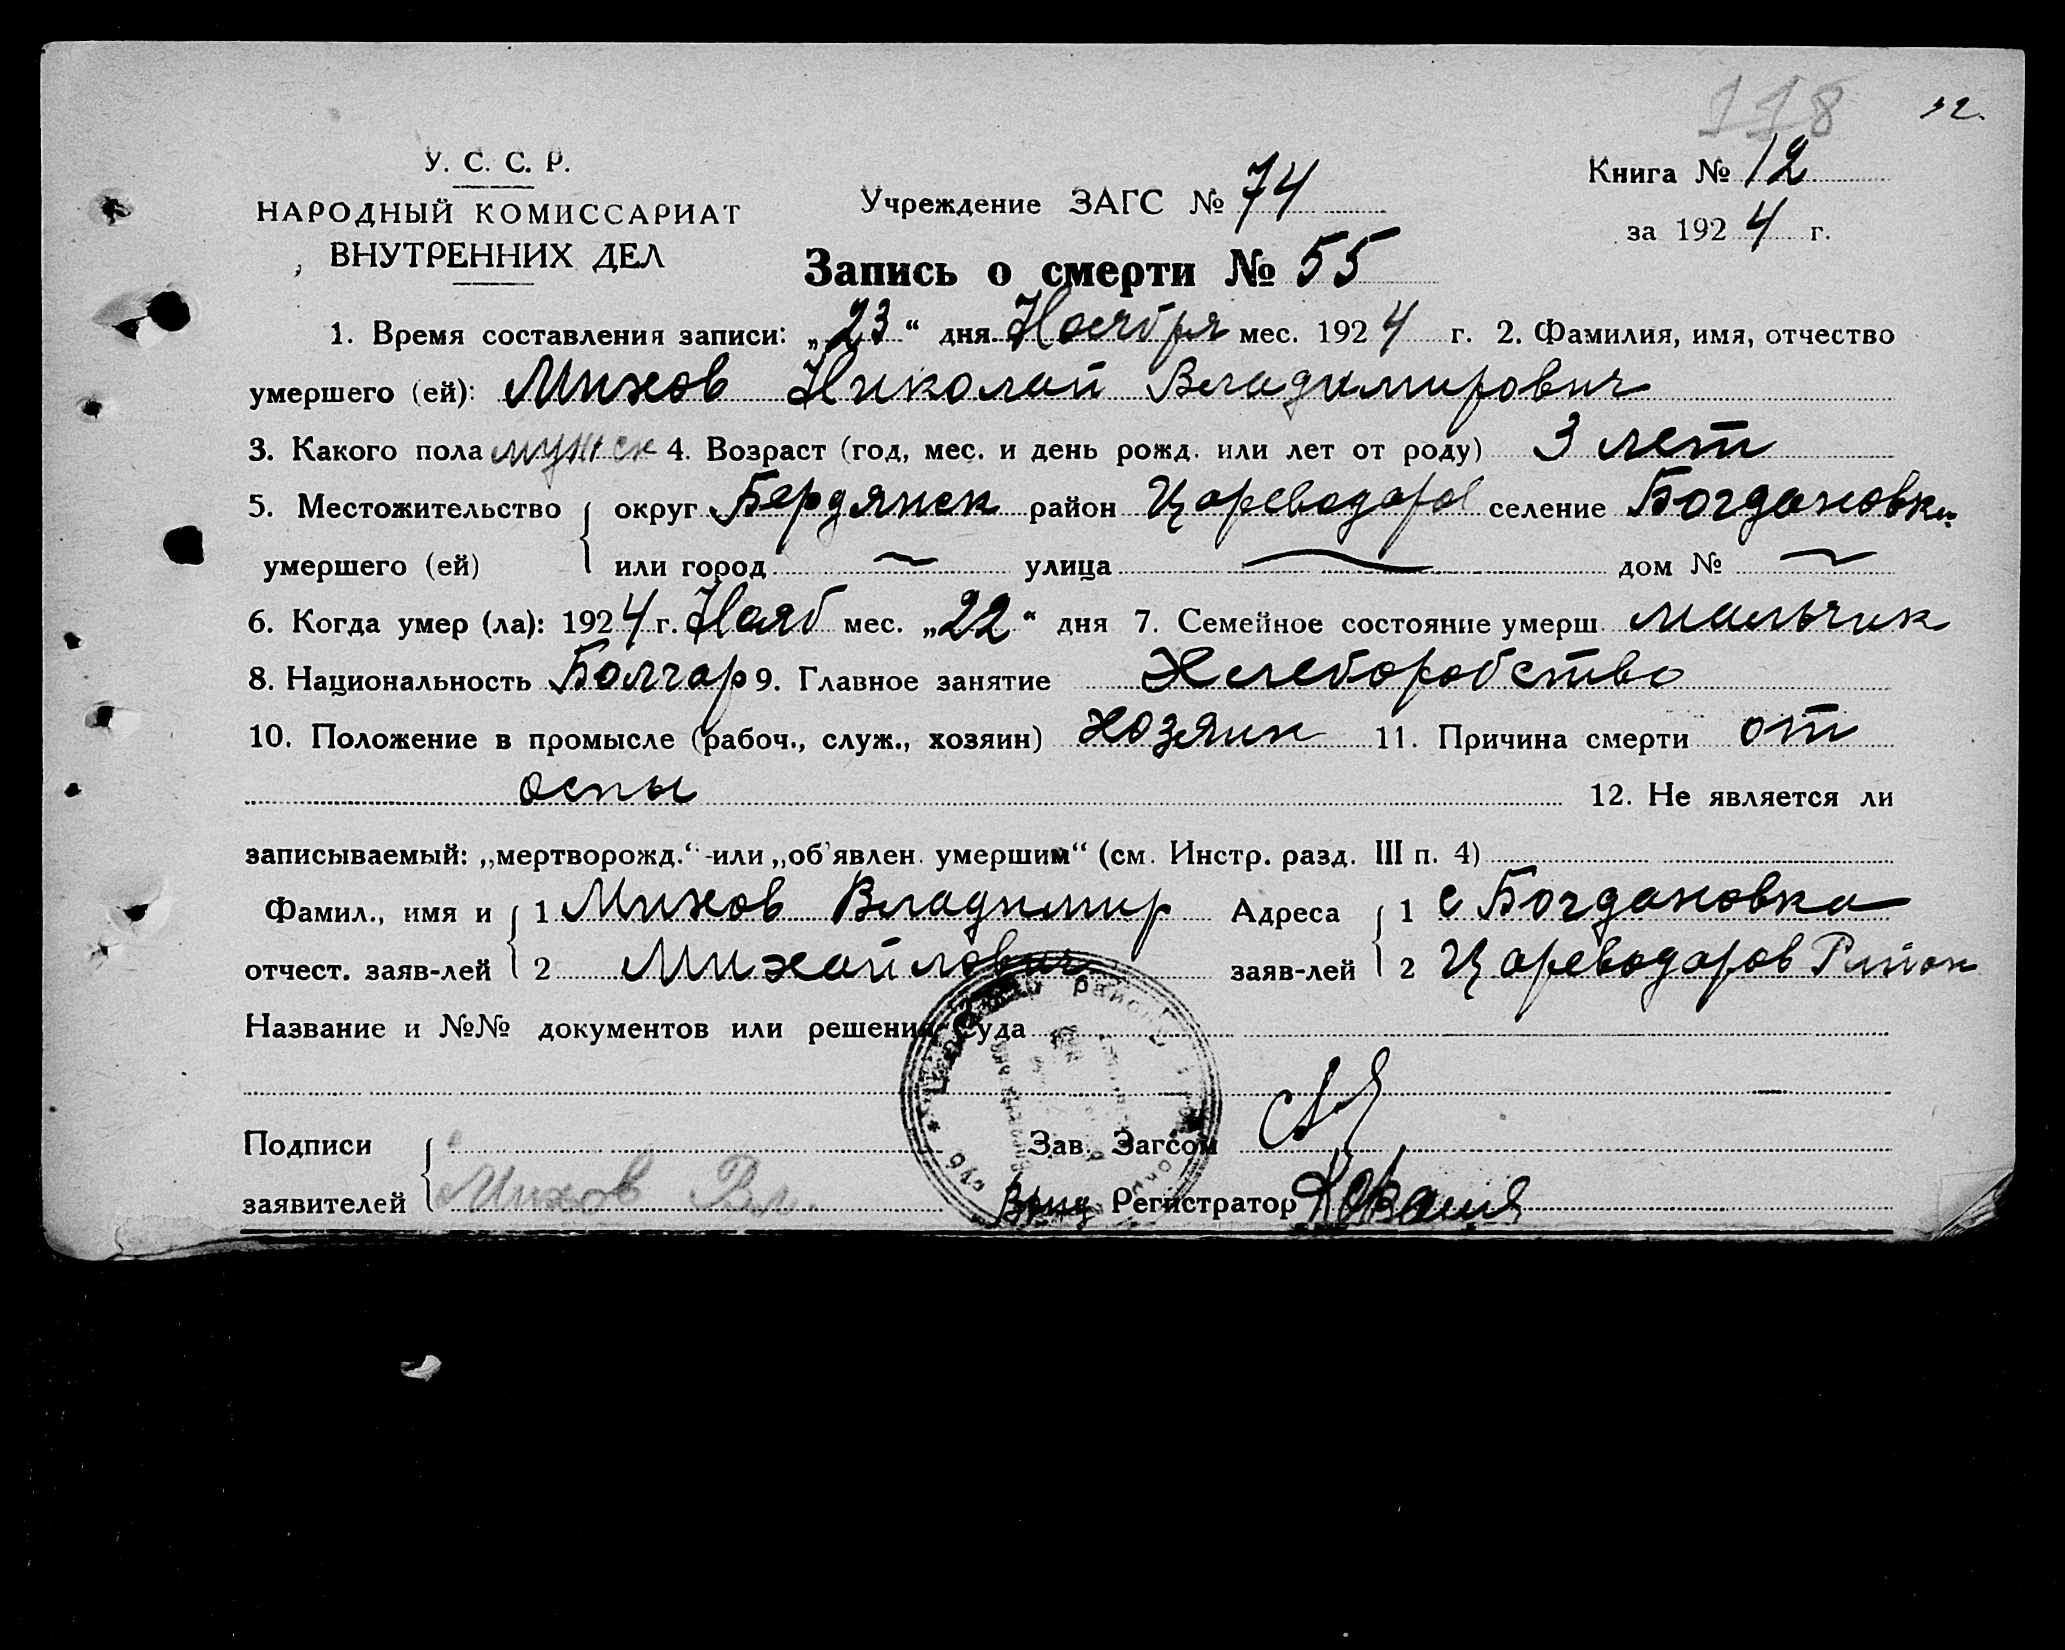 118 32.
У. С. С. Р.
НАРОДНЫЙ КОМИССАРИАТ
ВНУТРЕННИХ ДЕЛ
Учреждение ЗАГС № 74
Книга № 12
за 1924 г.
Запись о смерти № 55
1. Время составления записи: „23“ дня Ноября мес. 1924 г. 2. Фамилия, имя, отчество
умершего (ей): Михов Николай Владимирович
3. Какого пола мужск 4. Возраст (год, мес. и день рожд. или лет от роду) 3 лет
5. Местожительство { округ Бердянск район Цареводаров селение Богдановка
умершего (ей) или город — улица — дом № —
6. Когда умер (ла): 1924 г. Нояб мес. „22“ дня 7. Семейное состояние умерш мальчик
8. Национальность Болгар 9. Главное занятие Хлеборобство
10. Положение в промысле (рабоч., служ., хозяин) хозяин 11. Причина смерти от
оспы 12. Не является ли
записываемый: „мертворожд.“ -или „об'явлен. умершим“ (см. Инстр. разд. III п. 4)
Фамил., имя и { 1 Михов Владимир Адреса { 1 с Богдановка
отчест. заяв-лей 2 Михайлович заяв-лей 2 Цареводаров Район
Название и №№ документов или решения Суда
Подписи { Зав. Загсом
заявителей Михов Вл. Врид Регистратор